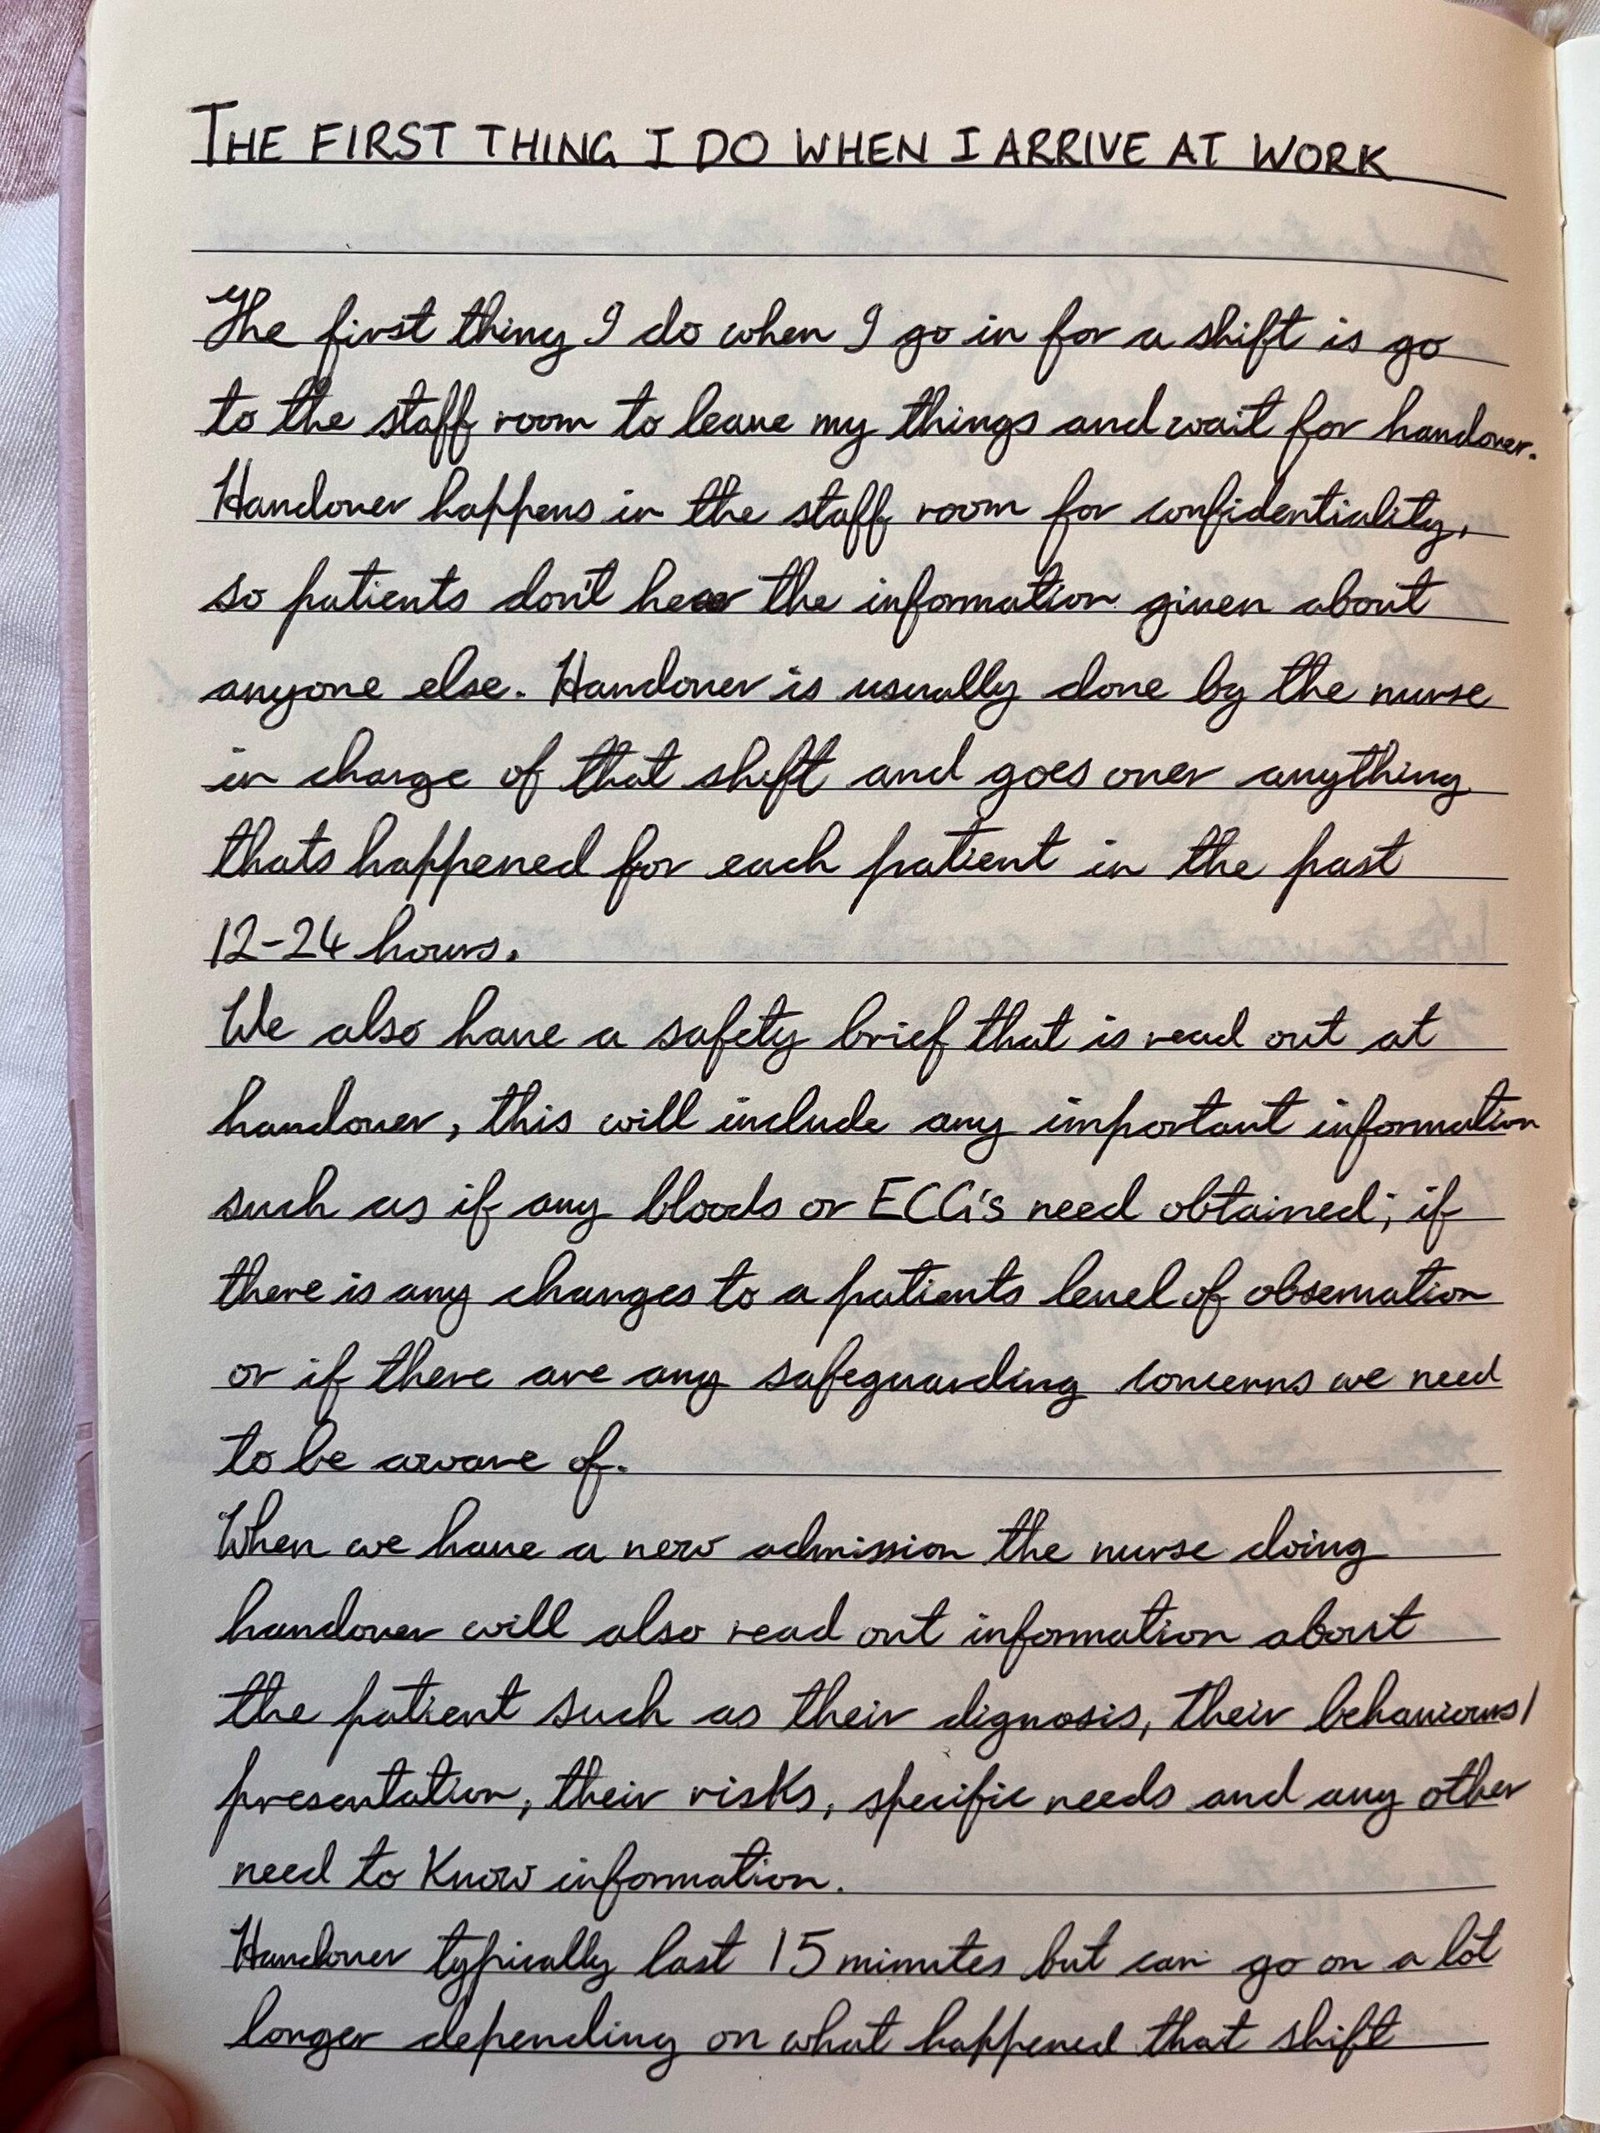 THE FIRST THING I DO WHEN I ARRIVE AT WORK
The first thing I do when I go in for a shift is go
to the staff room to leave my things and wait for handover.
Handover happens in the staff room for confidentiality,
so patients don't hear the information given about
anyone else. Handover is usually done by the nurse
in charge of that shift and goes over anything
thats happened for each patient in the past
12-24 hours.
We also have a safety brief that is read out at
handover, this will include any important information
such as if any bloods or ECG's need obtained; if
there is any changes to a patients level of observation
or if there are any safeguarding concerns we need
to be aware of.
When we have a new admission the nurse doing
handover will also read out information about
the patient such as their dignosis, their behaviours/
presentation, their risks, specific needs and any other
need to know information.
Handover typically last 15 minutes but can go on a lot
longer depending on what happened that shift